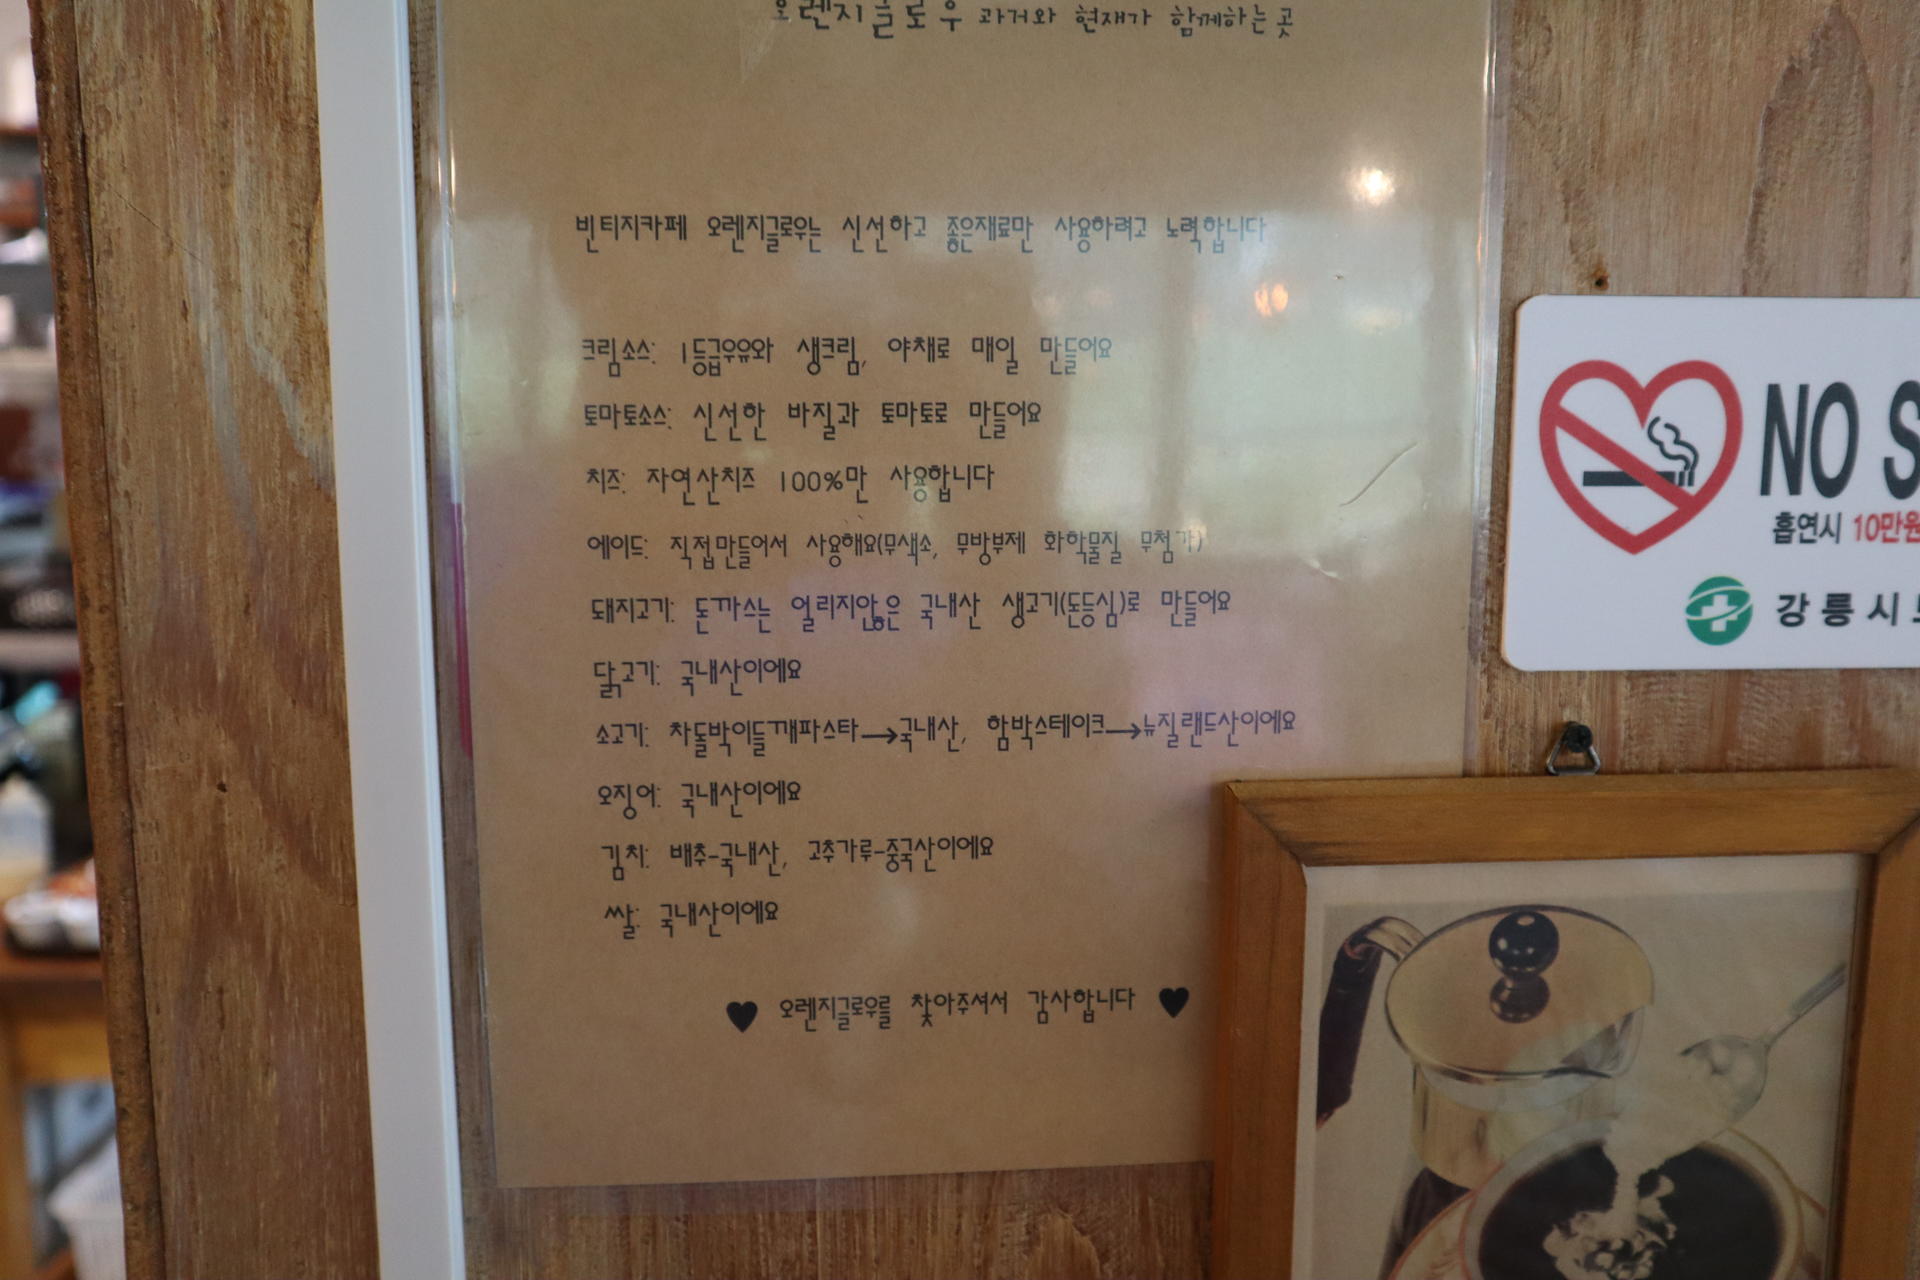 오렌지글로우 과거와 현재가 함께하는곳
빈티지카페 오렌지글로우는 신선하고 좋은재료만 사용하려고 노력합니다
크림소스: 1등급우유와 생크림, 야채로 매일 만들어요
토마토소스: 신선한 바질과 토마토로 만들어요
치즈: 자연산치즈 100%만 사용합니다
에이드: 직접만들어서 사용해요(무색소, 무방부제 화학물질 무첨가)
돼지고기: 돈까스는 얼리지않은 국내산 생고기(돈등심)로 만들어요
닭고기: 국내산이에요
소고기: 차돌박이들깨파스타→국내산, 함박스테이크→뉴질랜드산이에요
오징어: 국내산이에요
김치: 배추-국내산, 고추가루-중국산이에요
쌀: 국내산이에요
♥ 오렌지글로우를 찾아주셔서 감사합니다 ♥
NO S
흡연시 10만원
강릉시